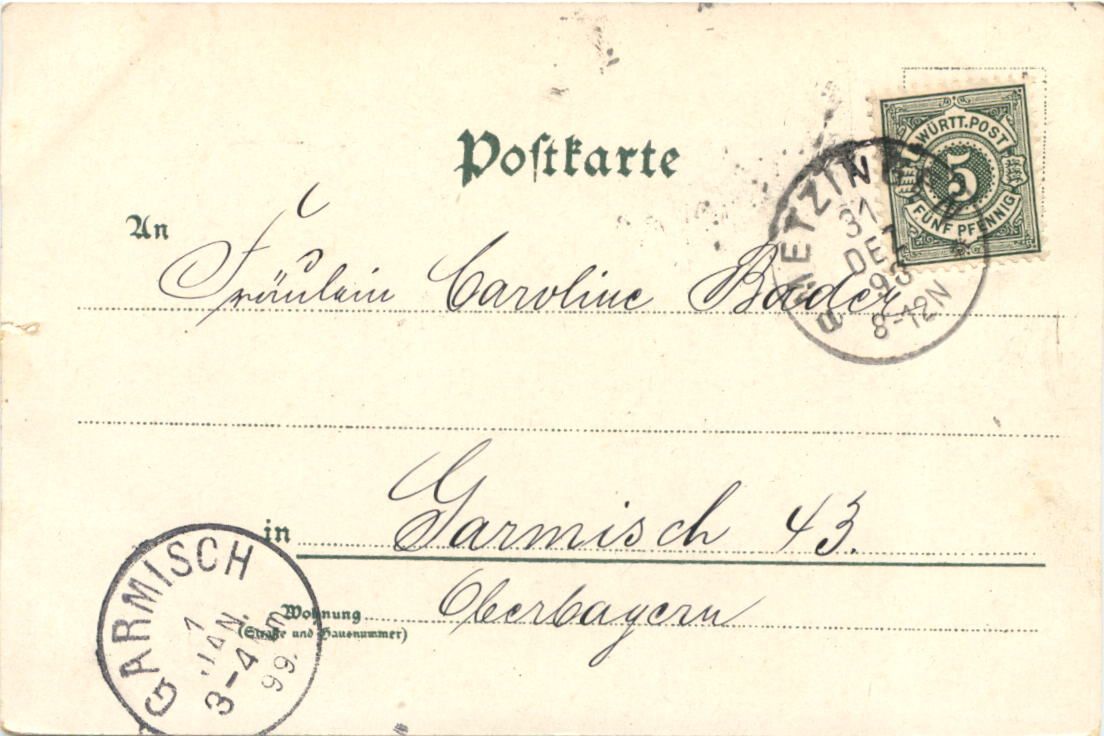 Postkarte
WÜRTT. POST
5
FÜNF PFENNIG
METZINGEN
31
DEZ
98
8-12N
An
Fräulein Caroline Bader
in Garmisch 43.
Wohnung Oberbayern
(Straße und Hausnummer)
GARMISCH
1
JAN.
3-4 Nm
99.